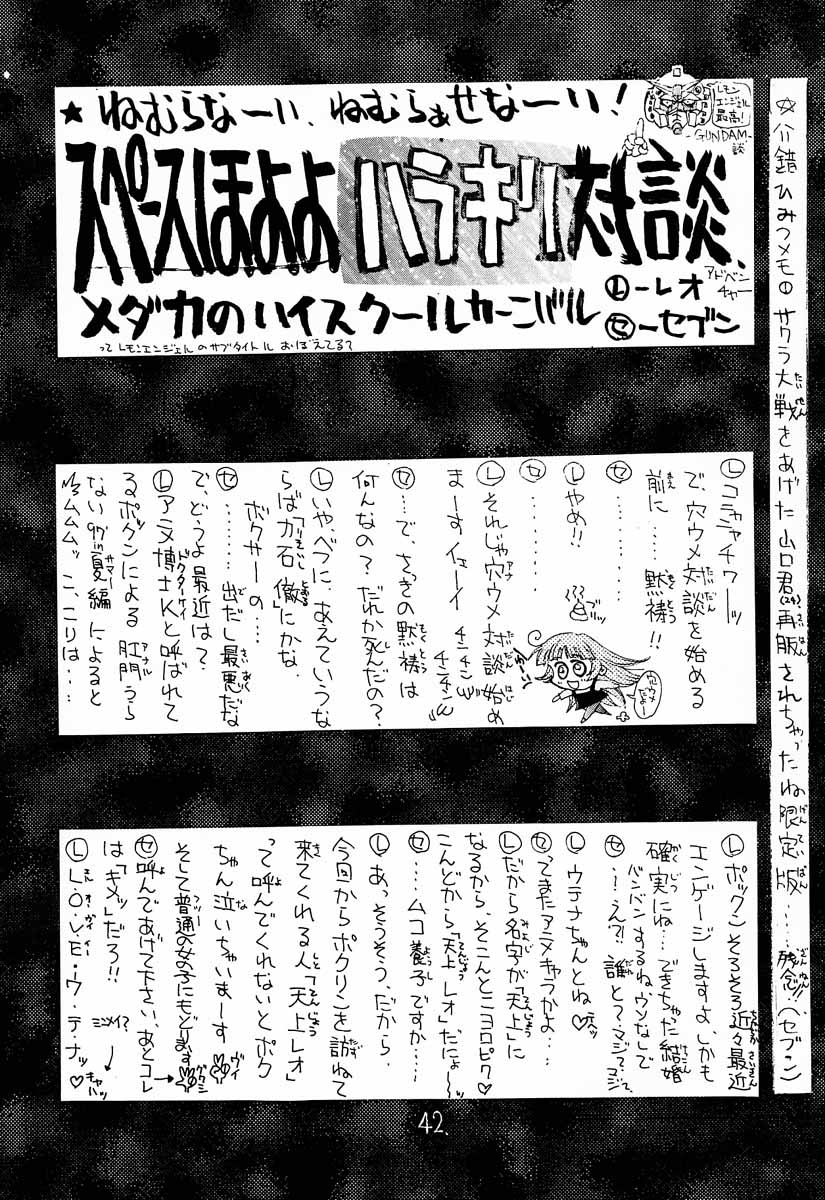 ★ねむらなーい、ねむらぁせなーい!
レモン
エンジェル
最高!
-GUNDAM-
談
スペースほよよハラキリ対談、
メダカのハイスクールカーニバル
Ⓛ-レオ
アドベンチャー
㋝-セブン
ってレモンエンジェルのサブタイトルおぼえてる?
ひみつメモ
サクラ大戦をあげた山口君(24)、再販されちゃったね限定版……残念!!(セブン)
Ⓛコニャニャチワーッ
で、穴ウメ対談を始める
前に……黙祷!!
㋝…………
Ⓛやめ!!
㋝…………
Ⓛそれじゃ穴ウメ対談始め
まーすイェーイ
チンチン
チンチン
㋝…で、さっきの黙祷は
何んなの?だれか死んだの?
Ⓛいや、べつに、あえていうな
らば力石徹にかな、
ボクサーの…
㋝……出だし最悪だな
で、どうよ最近は?
Ⓛアニメ博士Kと呼ばれて
るポックンによる肛門うら
ない97'夏編によると
ムムムッこ、こりは…
穴ウメ
だよー
Ⓛポックンそろそろ近々最近
エンゲージしますよ、しかも
確実にね…できちゃった結婚
バンバンするね、ウソなしで
㋝…え?!誰と?マジで?マジで、
Ⓛウテナちゃんとね♡
㋝ってまたアニメキャラかよ…
Ⓛだから名字が「天上」に
なるから、そこんとこヨロピク♡
こんどから「天上レオ」だにょ〜
㋝…ムコ養子ですか……
Ⓛあっそうそう、だから
今回からポクリンを訪ねて
来てくれる人「天上レオ」
って呼んでくれないとポク
ちゃん泣いちゃいまーす
そして普通の女の子にもどります
ヴイ
㋝呼んであげて下さい、あとコレ
は「キメッ」だろ!!
ミツメイ?
ⓁL・O・V・E・ウ・テ・ナッ♡
キャハッ
42.